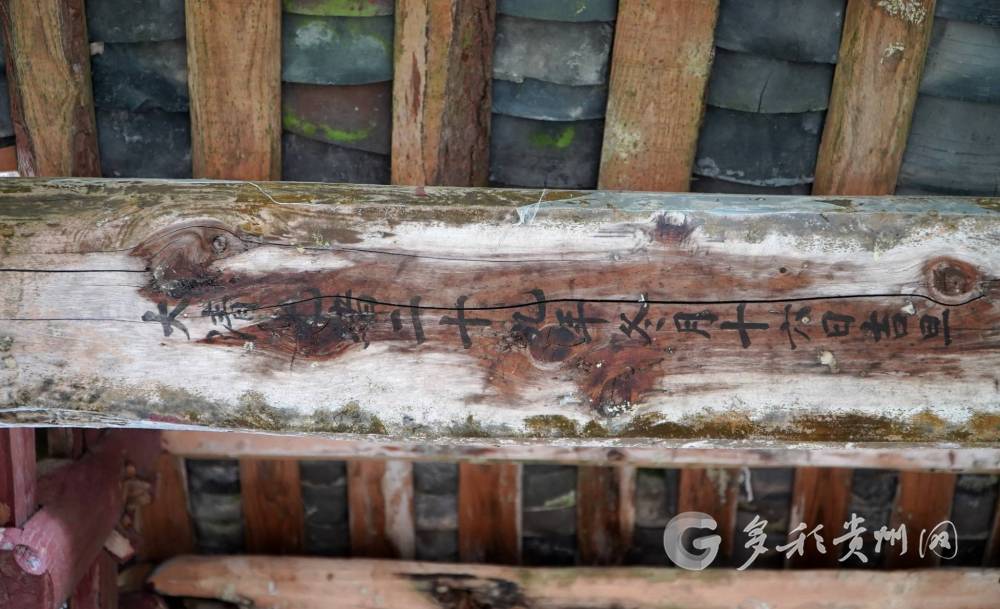 大清光緒二十九年冬月十六日吉旦
多彩贵州网